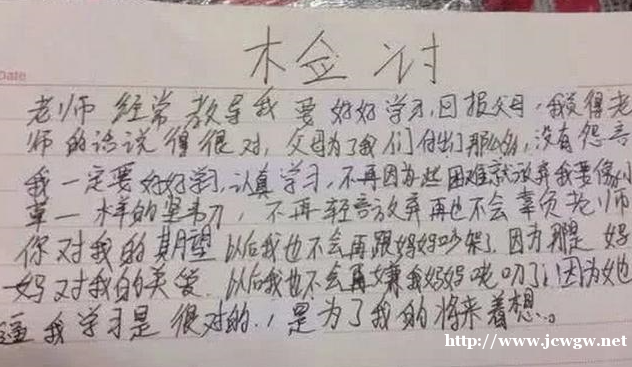 检讨
Date
老师经常教导我要好好学习,回报父母,我觉得老
师的话说得很对,父母为了我们付出们那么多,没有怨言
我一定要好好学习,认真学习,不再因为些困难就放弃我要像小
草一样的坚韧,不再轻言放弃再也不会辜负老师
你对我的期望以后我也不会再跟妈妈吵架了因为那是妈
妈对我的关爱.以后我也不会再嫌我妈妈唠叨了,因为她
逼我学习是很对的.,是为了我的将来着想。
http://www.jcwgw.net